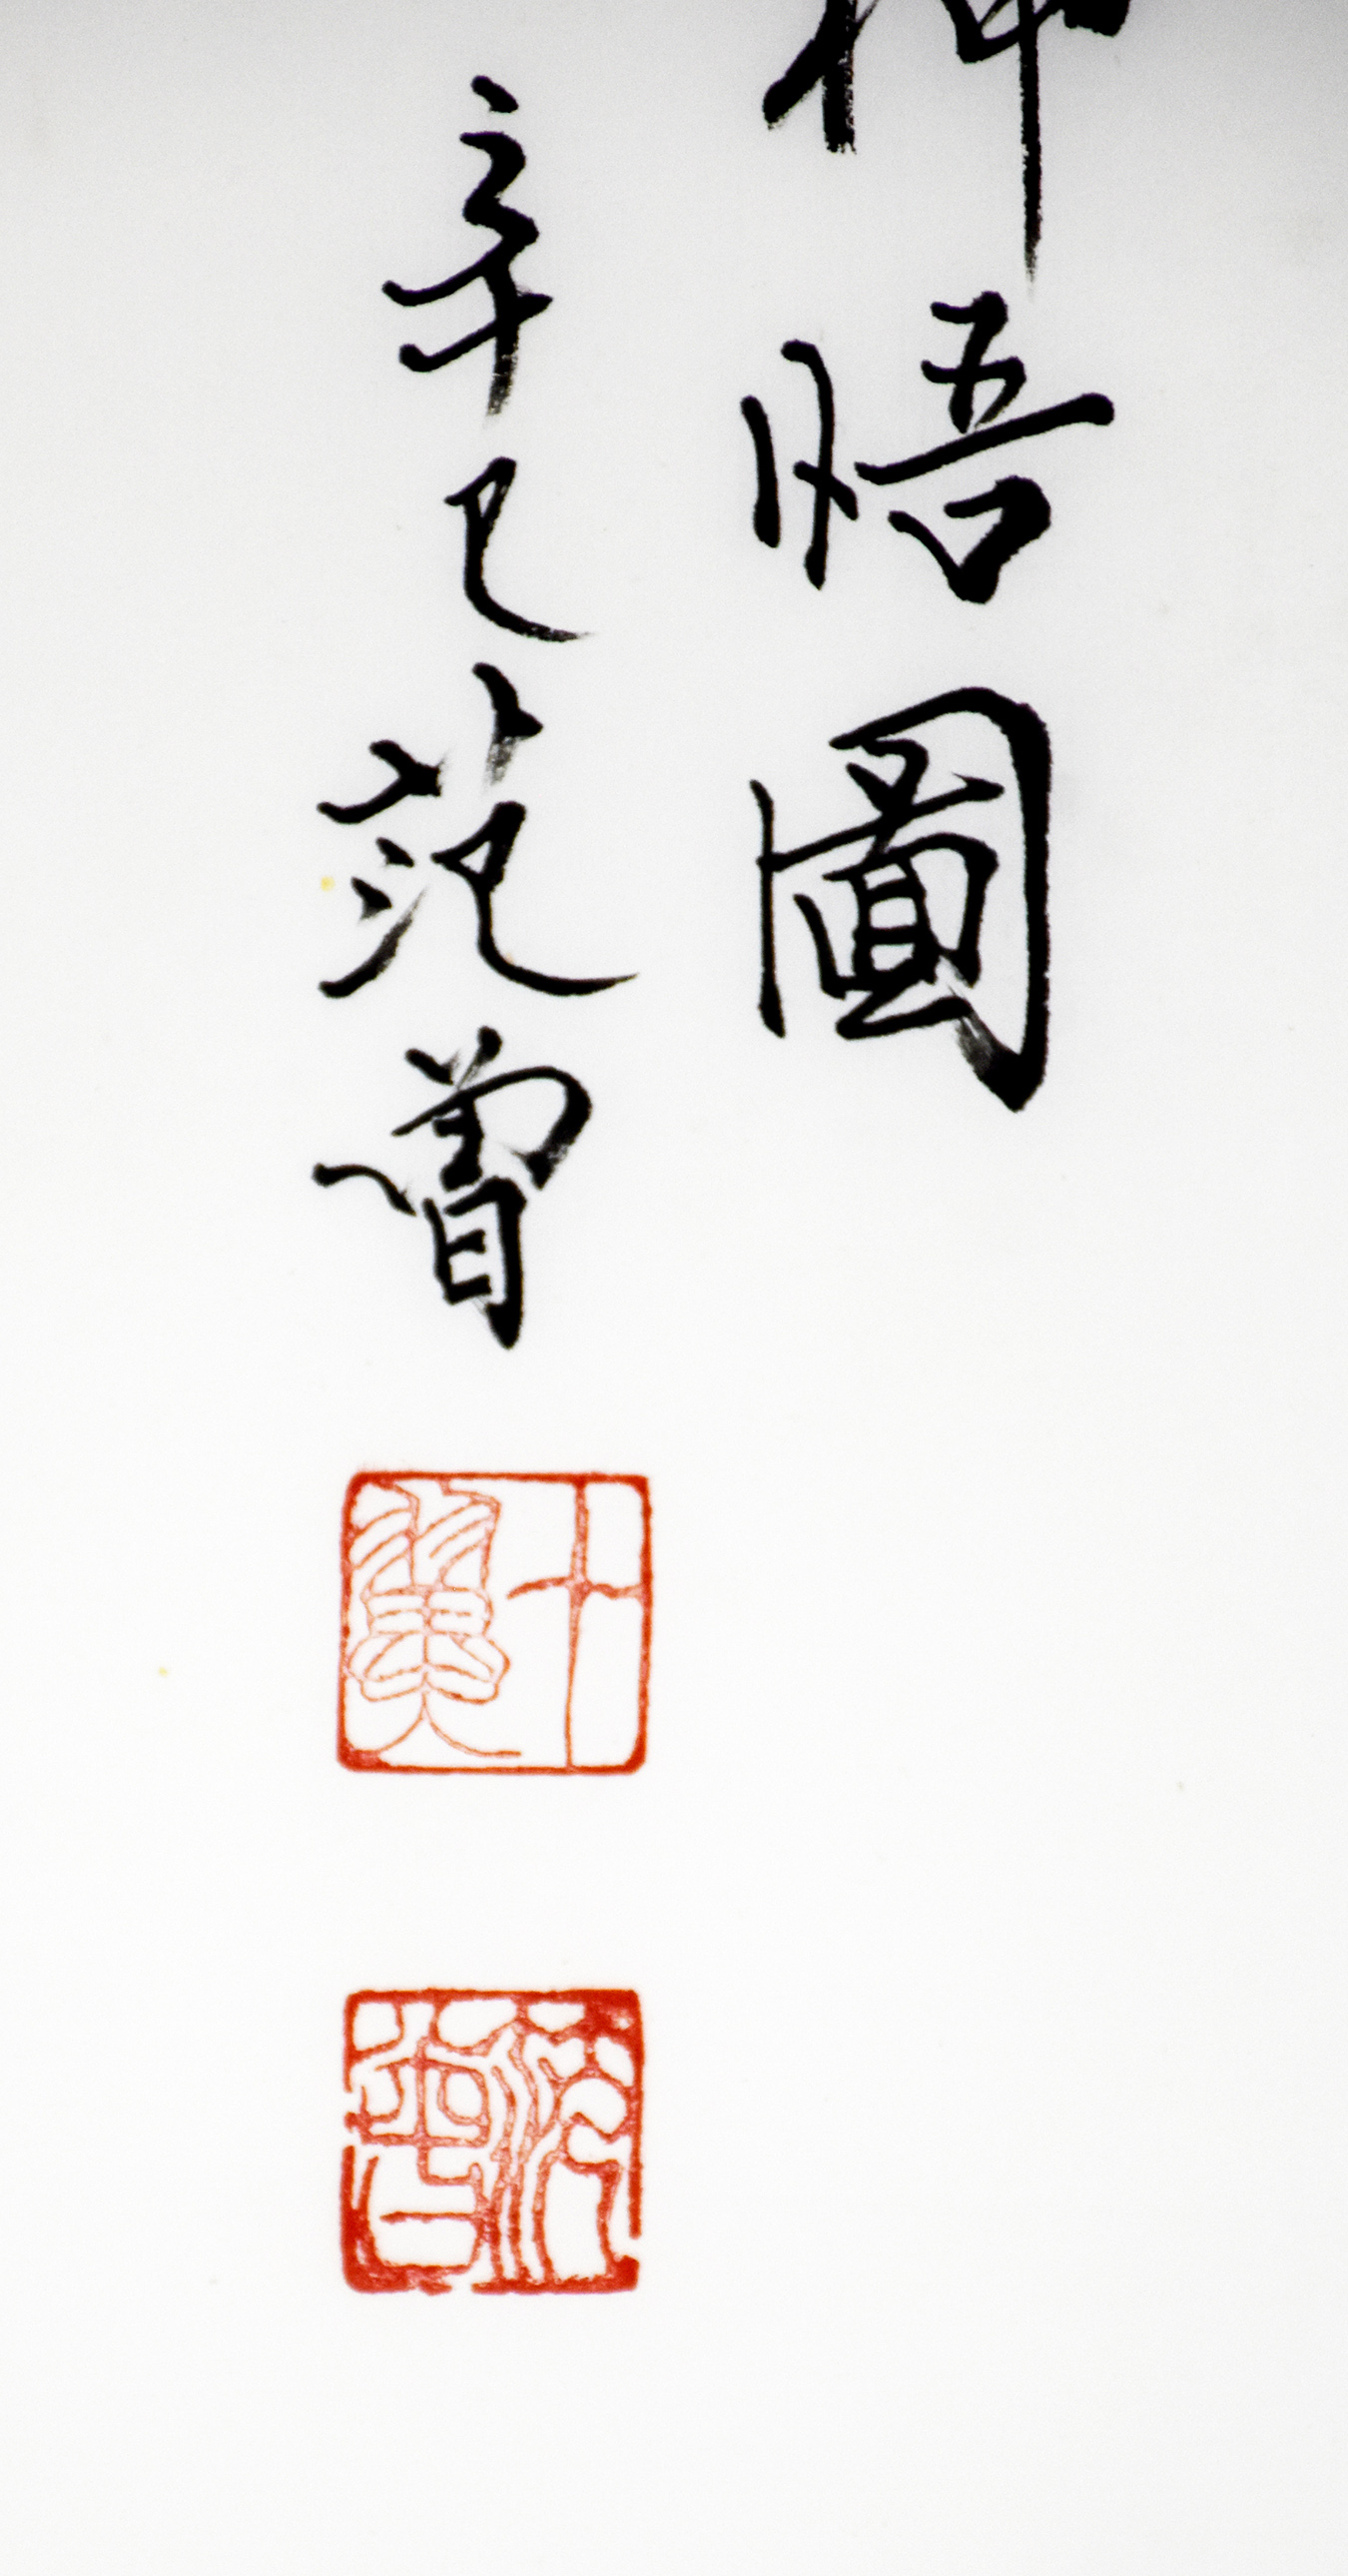 神悟圖
辛巳范曾
十翼
范曾